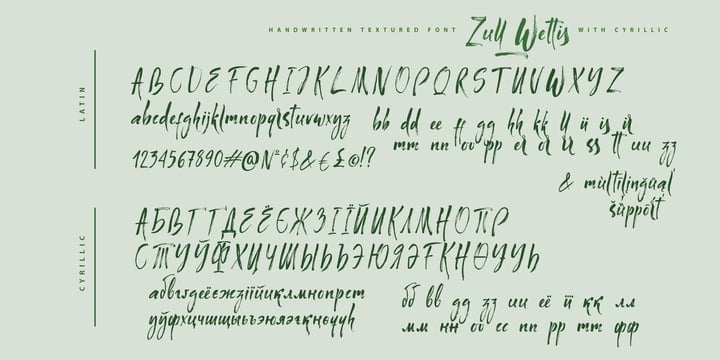 HANDWRITTEN TEXTURED FONT Zull Wettis WITH CYRILLIC
LATIN
ABCDEFGHIJKLMNOPQRSTUVWXYZ
abcdefghijklmnopqrstuvwxyz
1234567890#@№¢$&€£©!?
bb dd ee ff gg hh kk ll ii is ir
mm nn oo pp er or ir ss tt uu zz
& multilingual support
CYRILLIC
АБВГҐДЕЁЄЖЗІЇЙИКЛМНОПР
СТУЎФХЦЧШЫЬЪЭЮЯӘҒҚҢӨҮҰҺ
абвгґдеёєжзіїйиқлмнопрст
уўфхцчшщыьъэюяәғқңөүұһ
бб вв дд зз ии её її ққ лл
мм нн оо пп рр тт фф